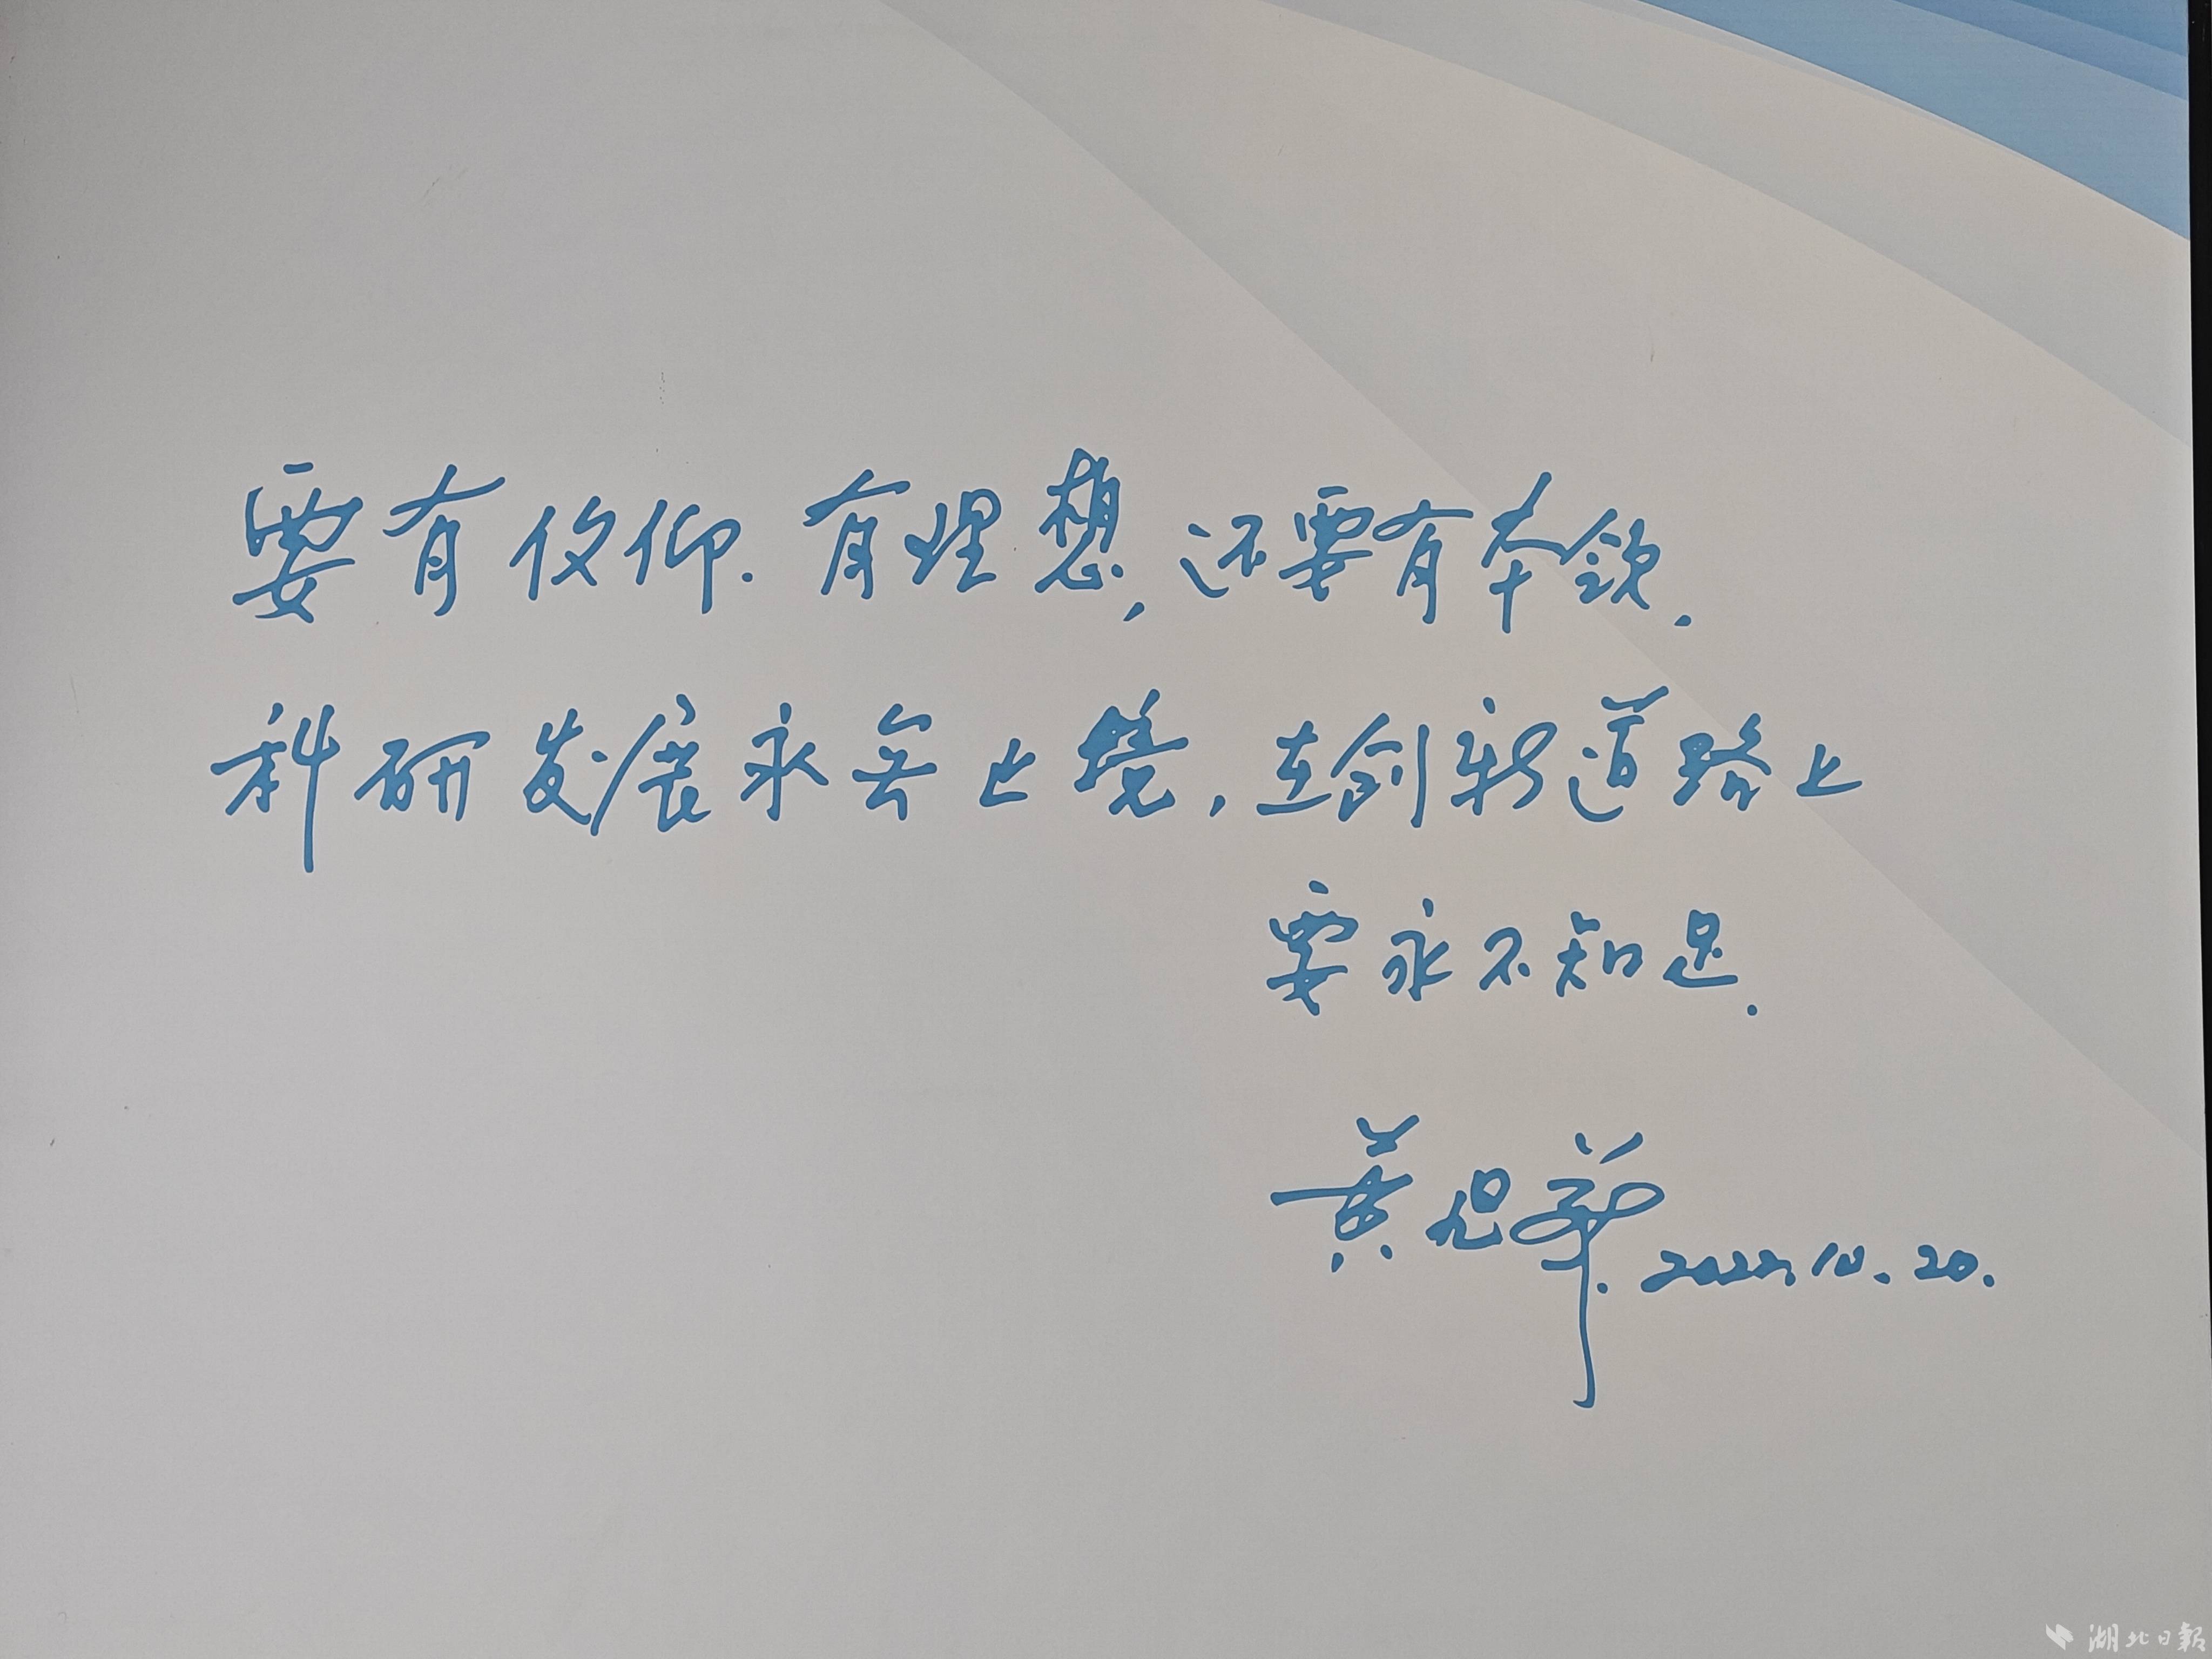 要有信仰.有理想,还要有本领.
科研发展永无止境,在创新道路上
要永不知足.
黄旭华.2022.10.20.
湖北日報